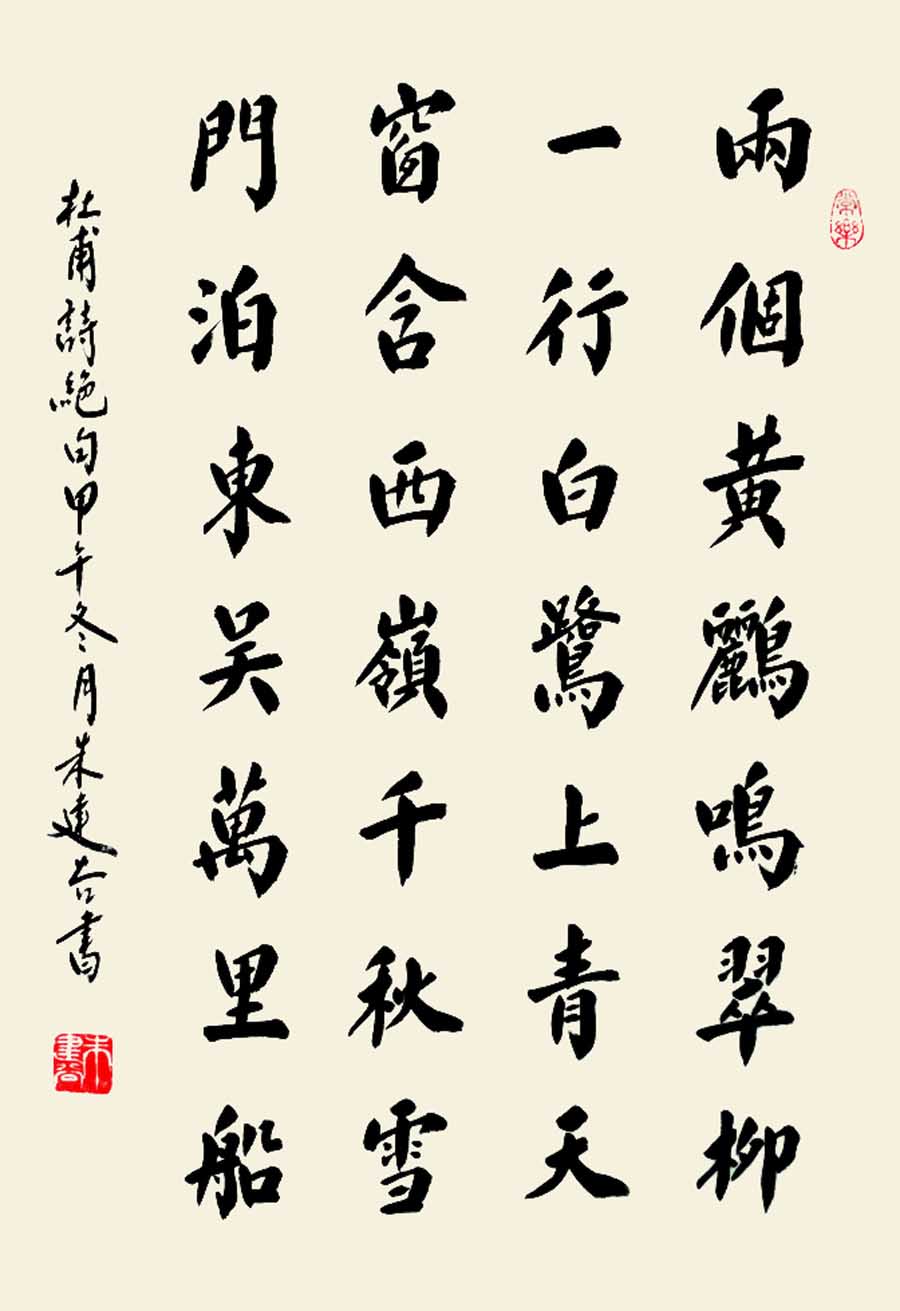 兩個黃鸝鳴翠柳
一行白鷺上青天
窗含西嶺千秋雪
門泊東吴萬里船
杜甫詩絕句甲午冬月朱建谷書